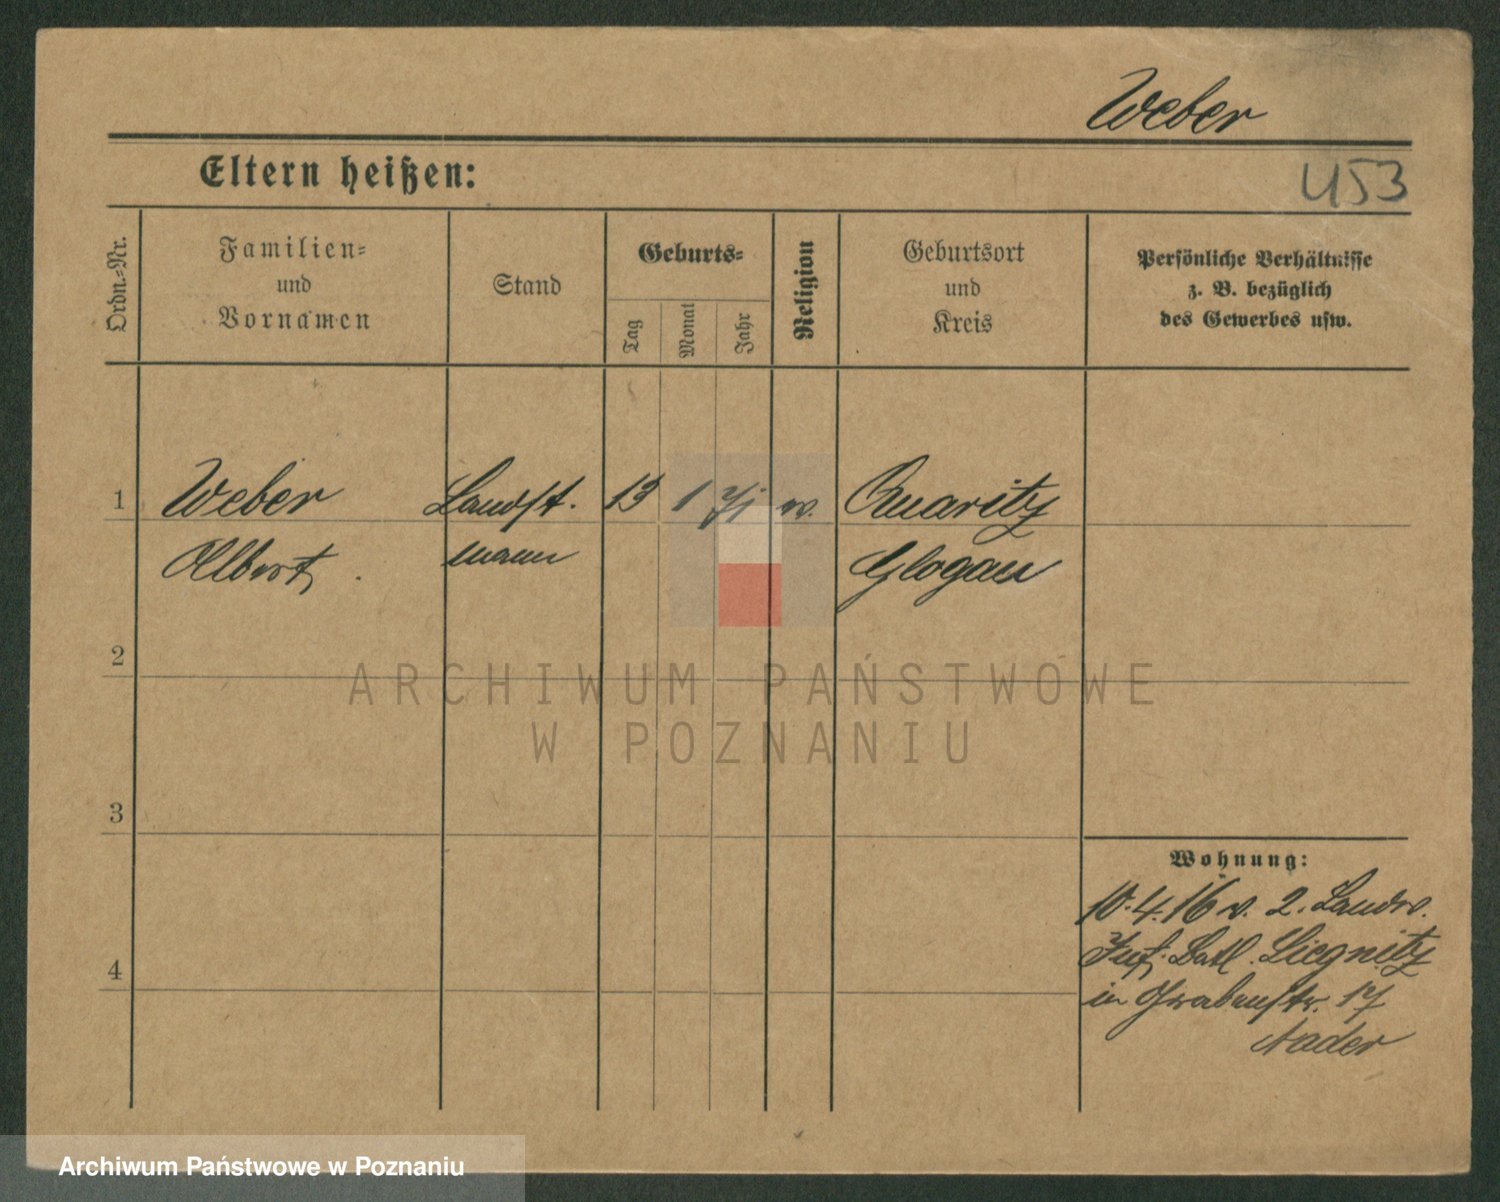 Weber
Eltern heißen:
453
Ordn.-Nr.
Familien-
und
Vornamen
Stand
Geburts-
Tag
Monat
Jahr
Religion
Geburtsort
und
Kreis
Persönliche Verhältnisse
z. B. bezüglich
des Gewerbes usw.
1
Weber
Landst.
13
1
Quaritz
Albert
mann
Glogau
2
ARCHIWUM PAŃSTWOWE
W POZNANIU
3
Wohnung:
10.4.16 v. 2. Landw.
Inf. Batl. Liegnitz
in Grabenstr. 17
Nader
4
Archiwum Państwowe w Poznaniu